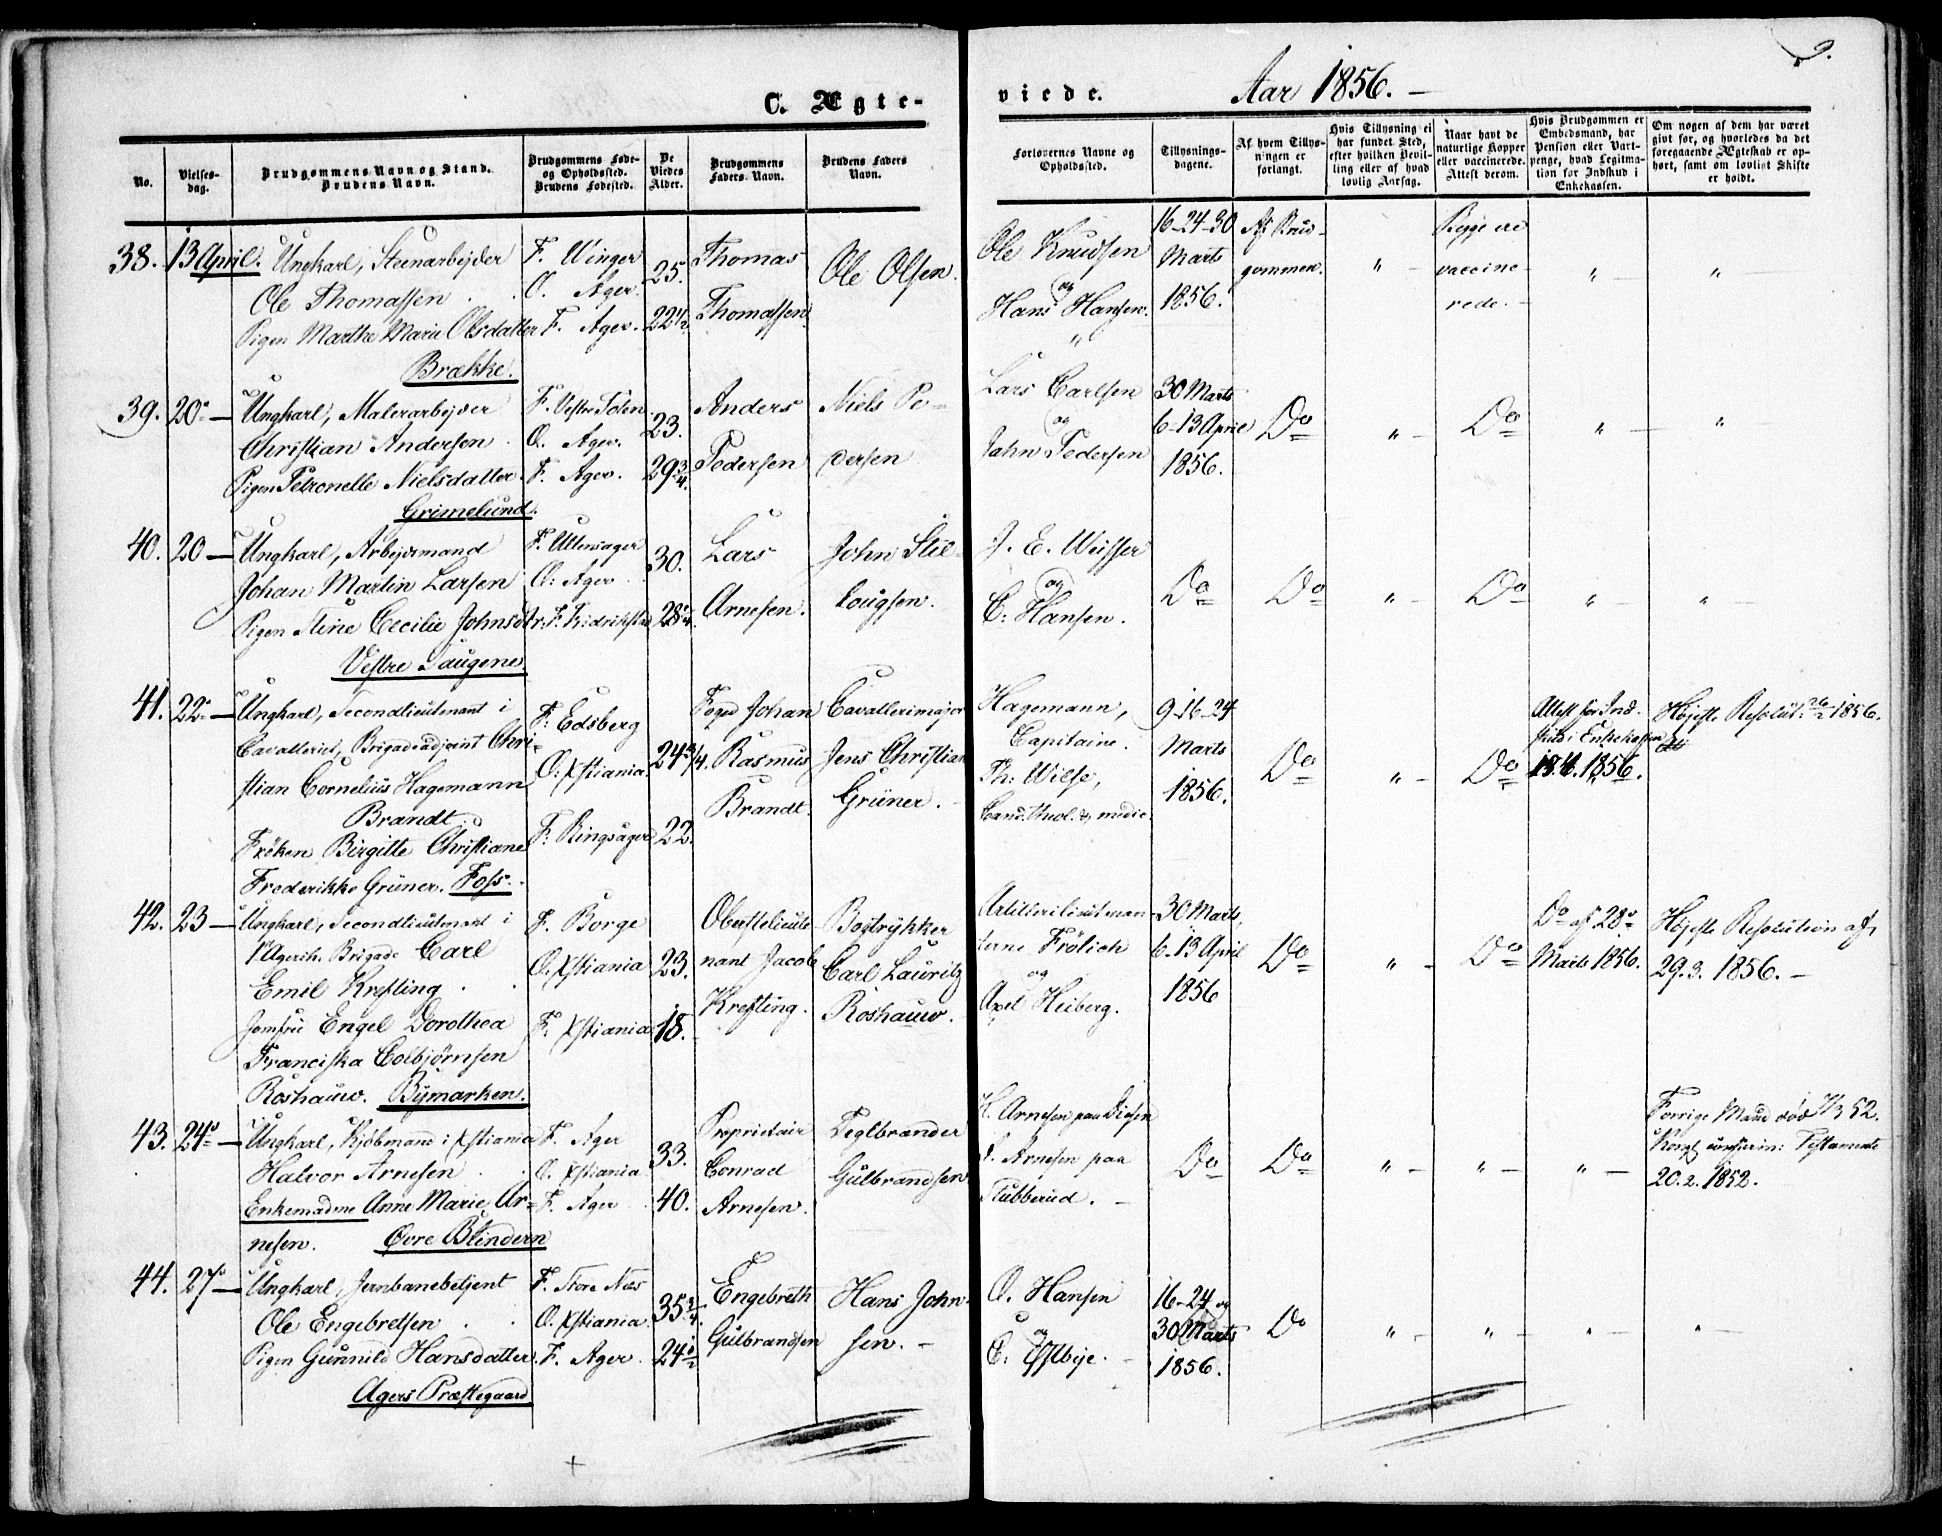 9.
C. Ægte-
viede.
Aar 1856.
No.
Vielses-
dag.
Brudgommens Navn og Stand.
Brudens Navn.
Brudgommens Føde-
og Opholdssted.
Brudens Fødested.
De
Viedes
Alder.
Brudgommens
Faders Navn.
Brudens Faders
Navn.
Forlovernes Navne og
Opholdssted.
Tillysnings-
dagene.
Af hvem Tillys-
ningen er
forlangt.
Hvis Tillysning ei
har fundet Sted,
efter hvilken Bevil-
ling eller af hvad
lovlig Aarsag.
Naar havt de
naturlige Kopper
eller vaccinerede.
Attest derom.
Hvis Brudgommen er
Embedsmand, har
Pension eller Vart-
penge, hvad Legitima-
tion for Indskud i
Enkekassen.
Om nogen af dem har været
givt før, og hvorledes da det
foregaaende Ægteskab er op-
hørt, samt om lovligt Skifte
er holdt.
38. 13 April.
Ungkarl, Steenarbejder
Ole Thomassen
Pigen Marthe Maria Olsdatter
Brække.
F. Winger
O. Ager.
F. Ager.
25.
22 1/2
Thomas
Thomassen
Ole Olsen.
Ole Knudsen
og
Hans Hansen.
16-24-30
Marts
1856.
Af Brud-
gommen.
" -
Begge ere
vaccine-
rede. -
" -
" -
39. 20de -
Ungkarl, Malerarbejder
Christian Andersen
Pigen Petronelle Nielsdatter.
Grimelund.
F. Vestre Toten
O. Ager.
F. Ager.
23.
29 3/4.
Anders
Pedersen
Niels Pe-
dersen
Lars Carlsen
og
Jahn Pedersen
30 Marts
6-13 April
1856.
Do
" -
Do
" -
" -
40. 20 -
Ungkarl, Arbejdsmand
Johan Martin Larsen
Pigen Stine Cecilie Johnsdtr:
Vestre Saugene.
F. Ullensager
O: Ager
F. Fredrikstad
30.
28 1/4.
Lars
Arnesen.
John
lougsen.
J. E.
og
C: Hansen.
Do
Do
" -
Do
" -
" -
41. 22de -
Ungkarl, Secondlieutenant i
Cavalleriet, Brigadeadjoint Chri-
stian Cornelius Hagemann
Brandt.
Frøken Birgitte Christiane
Frederikke Grüner. Foss.
F: Edsberg
O: Xstiania.
F: Ringsager
24 3/4.
22.
Foged Johan
Rasmus
Brandt.
Cavallerimajor
Jens Christian
Grüner. -
Hagemann,
Capitaine.
Th: Wilse,
Cand. theol. & medic.
9-16-24
Marts
1856.
Do
" -
Do
Attest for Ind-
skud i Enkekassen
1856.
Højeste Resolut: 26/2 1856.
42. 23 -
Ungkarl, Secondlieutenant i
Brigade Carl
Emil Krefting
Jomfru Engel Dorothea
Franciska Colbjørnsen
Roshauw. Bymarken.
F. Borge
O. Xstiania
F. Xstiania
23.
18.
Oberstelieute-
nant Jacob
Krefting.
Bogtrykker
Carl Lauritz
Roshauw.
Artillerilieutenan-
terne Frölich
og
Axel Heiberg.
30 Marts,
6-13 April
1856
Do
" -
Do
Do af 28de
Marts 1856.
Højeste Resolution af
29.3. 1856. -
43. 24de -
Ungkarl, Kjöbmand i Xstiania
Halvor Arnesen
Enkemadme Anne Marie Ar-
nesen. Øvre Blindern
F. Ager
O. Xstiania
F. Ager
33.
40.
Proprietair
Conrad
Arnesen.
Teglbrænder
Gulbrandsen
H. Arnesen paa Disen
Arnesen paa
Stubberud. -
Do
Do
" -
" -
" -
Forrige Mand død 7/3 52.
Testamente
20.2. 1852.
44. 27de -
Ungkarl, Jernbanebetjent
Ole Engebretsen
Pigen Gunnild Hansdatter.
Agers Præstegaard
F. Store Næs
O. Xstiania
F. Ager.
35 3/4.
24 1/2
Engebreth
Gulbrandsen
Hans John-
sen. -
O. Hansen
og
C: Østbye. -
16-24 og
30 Marts
1856.
Do
" -
" -
" -
" -